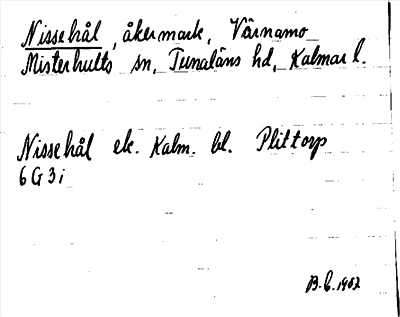 Nissehål, åkermark, Värnamo
Misterhults sn, Tunaläns hd, Kalmar l.
Nissehål ek. Kalm. bl. Plittorp
6 G 3 i
B. L. 1982